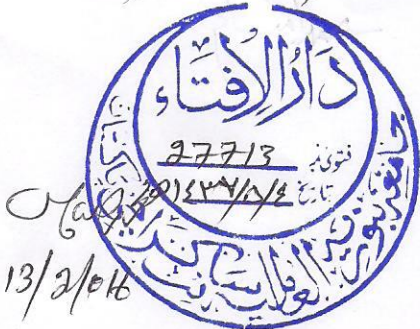 دَارُ الإِفتَاء
فتوی نمبر 27713
تاریخ
جامعہ بنوریہ العالمیہ سائٹ
13/2/016